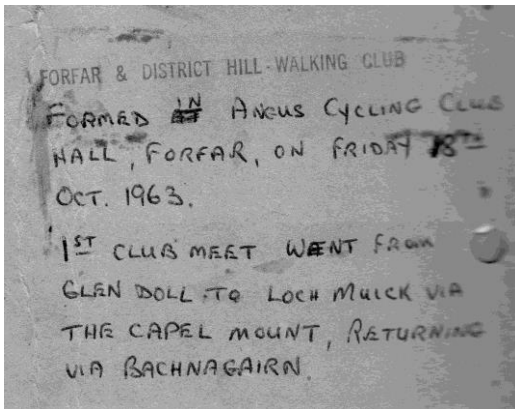 FORFAR & DISTRICT HILL-WALKING CLUB
FORMED IN ANGUS CYCLING CLUB
HALL, FORFAR, ON FRIDAY 18TH
OCT. 1963.
1ST CLUB MEET WENT FROM
GLEN DOLL TO LOCH MUICK VIA
THE CAPEL MOUNT, RETURNING
VIA BACHNAGAIRN.